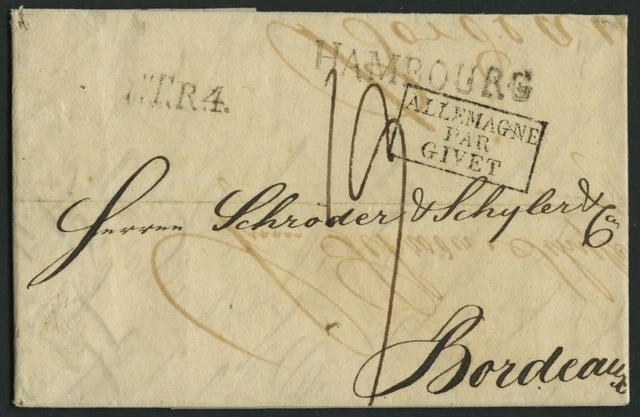 HAMBOURG
T.R.4.
ALLEMAGNE
PAR
GIVET
Herren Schröder & Schyler & Co
Bordeaux